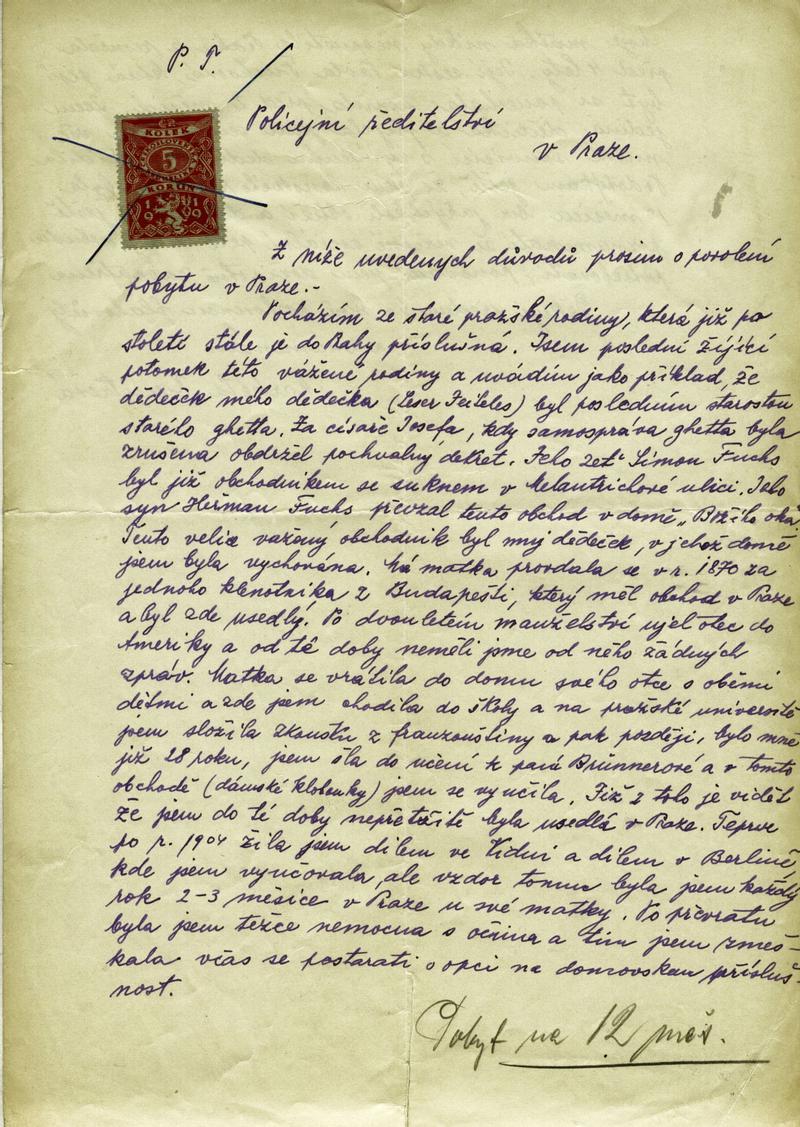 P. T.
KOLEK
5
KORUN
1919
Policejní ředitelství
v Praze.
Z níže uvedenych důvodů prosim o povolení
pobytu v Praze.-
Pocházím ze staré pražské rodiny, která již po
století stále je do Prahy příslušná. Jsem poslední žijící
potomek této vážené rodiny a uvádím jako příklad, že
dědeček mého dědečka (Leser Feiteles) byl posledním starostou
starého ghetta. Za císaře Josefa, kdy samospráva ghetta byla
zrušena obdržel pochvalný dekret. Jeho zeť Simon Fuchs
byl již obchodníkem se suknem v Melantrichové ulici. Jeho
syn Heřman Fuchs převzal tento obchod v domě „Božího oka".
Tento velice važený obchodník byl muj dědeček, v jehož domě
jsem byla vychována. Má matka provdala se v r. 1870 za
jednoho klenotníka z Budapešti, který měl obchod v Praze
a byl zde usedlý. Po dvouletém manželství ujel otec do
Ameriky a od té doby neměli jsme od něho žádných
zpráv. Matka se vrátila do domu svého otce s oběmi
dětmi a zde jsem chodila do školy a na pražské universitě
jsem složila zkoušku z franzouštiny a pak později, bylo mně
již 28 roku, jsem šla do učení k paní Brünnerové a v tomto
obchodě (dámské klobouky) jsem se vyučila. Již z toho je vidět
že jsem do té doby nepřetržitě byla usedlá v Praze. Teprve
po r. 1904 žila jsem dílem ve Vídni a dílem v Berlíně,
kde jsem vyučovala, ale vzdor tomu byla jsem každý
rok 2-3 měsíce v Praze u své matky. Po převratu
byla jsem těžce nemocna s očima a tím jsem zmeš-
kala včas se postarati o opci na domovskou přísluš-
nost.
Pobyt na 12 měs.